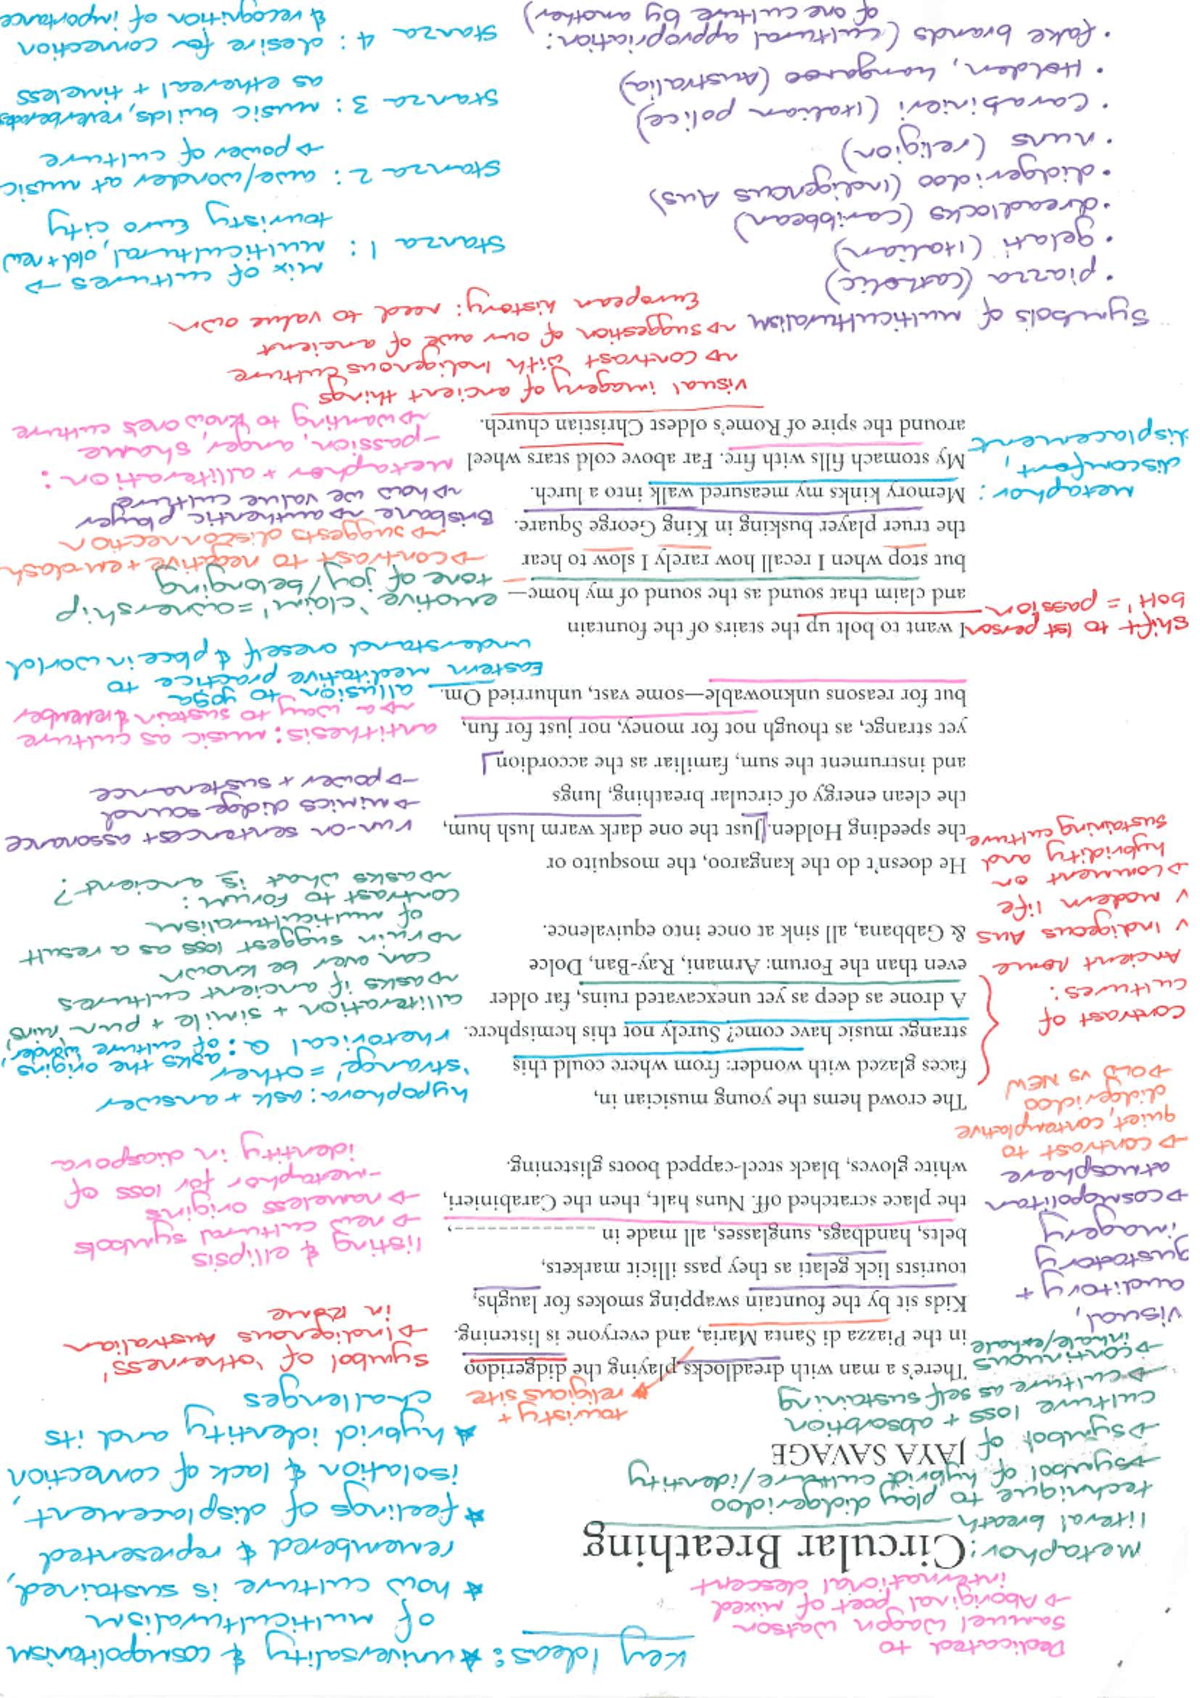 Key Ideas:
★ universality & cosmopolitanism
of multiculturalism
★ how culture is sustained,
remembered & represented
★ feelings of displacement,
isolation & lack of connection
★ hybrid identity and its
challenges
Dedicated to
Samuel Wagan Watson
→ Aboriginal poet of mixed
international descent
Circular Breathing
JAYA SAVAGE
metaphor:
literal breath
technique to play didgeridoo
→ symbol of hybrid culture/identity
→ symbol of
culture loss + absorption
→ culture as self sustaining
→ continuous
inhale/exhale
touristy +
religious site
There's a man with dreadlocks playing the didgeridoo
in the Piazza di Santa Maria, and everyone is listening.
Kids sit by the fountain swapping smokes for laughs,
tourists lick gelati as they pass illicit markets,
belts, handbags, sunglasses, all made in ------------,
the place scratched off. Nuns halt, then the Carabinieri,
white gloves, black steel-capped boots glistening.
symbol of 'otherness'
→ Indigenous Australian
in Rome
visual,
auditory +
gustatory
imagery
→ cosmopolitan
atmosphere
→ contrast to
quiet, contemplative
didgeridoo
→ OLD vs NEW
listing & ellipsis
→ new cultural symbols
→ nameless origins
- metaphor for loss of
identity in diaspora
The crowd hems the young musician in,
faces glazed with wonder: from where could this
strange music have come? Surely not this hemisphere.
A drone as deep as yet unexcavated ruins, far older
even than the Forum: Armani, Ray-Ban, Dolce
& Gabbana, all sink at once into equivalence.
hypophora: ask + answer
'strange' = other
rhetorical Q: asks the origins
of culture, 'wonder'
alliteration + simile + pun 'ruins'
→ asks if ancient cultures
can ever be known
→ ruin suggest loss as a result
of multiculturalism
contrast to forum:
→ asks what is ancient?
contrast of
cultures:
Ancient Rome
v Indigeous Aus
v modern life
→ comment on
hybridity and
sustaining culture
He doesn't do the kangaroo, the mosquito or
the speeding Holden. Just the one dark warm lush hum,
the clean energy of circular breathing, lungs
and instrument the sum, familiar as the accordion
yet strange, as though not for money, nor just for fun,
but for reasons unknowable—some vast, unhurried Om.
run-on sentences + assonance
→ mimics didge sound
→ power + sustenance
antithesis: music as culture
→ a way to sustain & remember
allusion to yoga
Eastern meditative practice to
understand oneself & place in world
I want to bolt up the stairs of the fountain
and claim that sound as the sound of my home—
but stop when I recall how rarely I slow to hear
the truer player busking in King George Square.
Memory kinks my measured walk into a lurch.
My stomach fills with fire. Far above cold stars wheel
around the spire of Rome's oldest Christian church.
shift to 1st person
'bolt' = passion
emotive 'claim' = ownership
tone of joy/belonging
→ contrast to negative + em dash
→ suggests disconnection
Brisbane → authentic player
→ how we value culture
metaphor:
discomfort,
displacement
metaphor + alliteration:
- passion, anger, shame
→ wanting to know one's culture
visual imagery of ancient things
→ contrast with Indigenous culture
→ suggestion of our awe of ancient
European history: need to value own
Symbols of multiculturalism
• piazza (catholic)
• gelati (Italian)
• dreadlocks (caribbean)
• didgeridoo (Indigenous Aus)
• nuns (religion)
• Carabinieri (Italian police)
• Holden, kangaroo (Australia)
• fake brands (cultural appropriation:
of one culture by another)
Stanza 1: mix of cultures →
multicultural, old + new
touristy Euro city
Stanza 2: awe/wonder at music
→ power of culture
Stanza 3: music builds, reverberates
as ethereal + timeless
Stanza 4: desire for connection
& recognition of importance